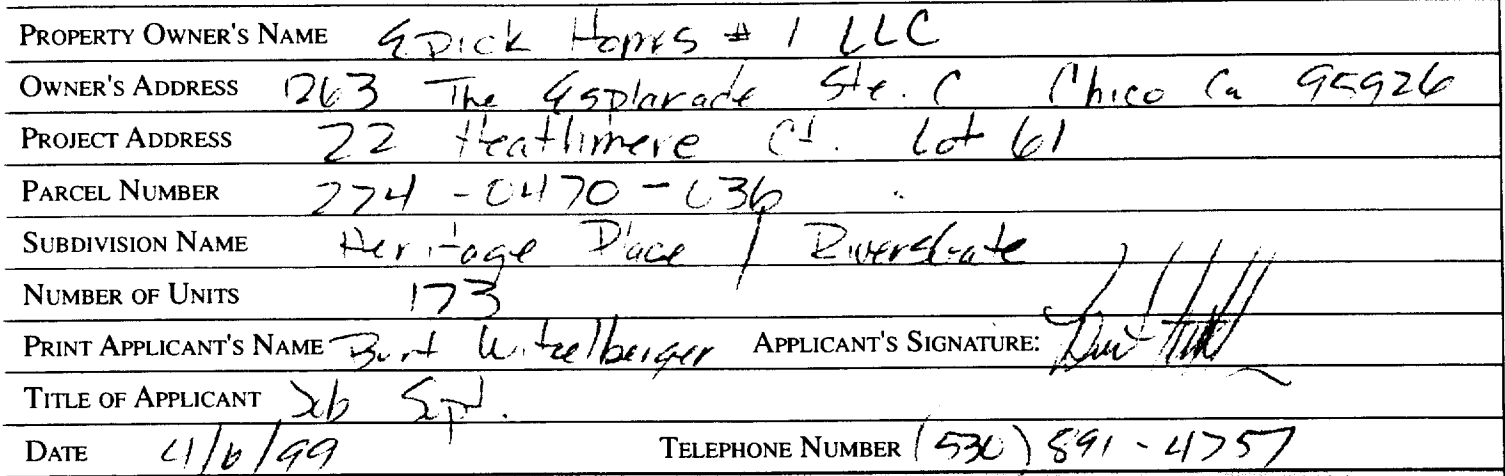 PROPERTY OWNER'S NAME Epick Homes # 1 LLC
OWNER'S ADDRESS 1263 The Esplanade Ste. C Chico Ca 95926
PROJECT ADDRESS 22 Heathmere Ct. Lot 61
PARCEL NUMBER 224-0470-036
SUBDIVISION NAME Heritage Place / Rivergate
NUMBER OF UNITS 173
PRINT APPLICANT'S NAME Burt Witzelberger APPLICANT'S SIGNATURE:
TITLE OF APPLICANT Job Supt.
DATE 4/6/99 TELEPHONE NUMBER (530) 891-4757